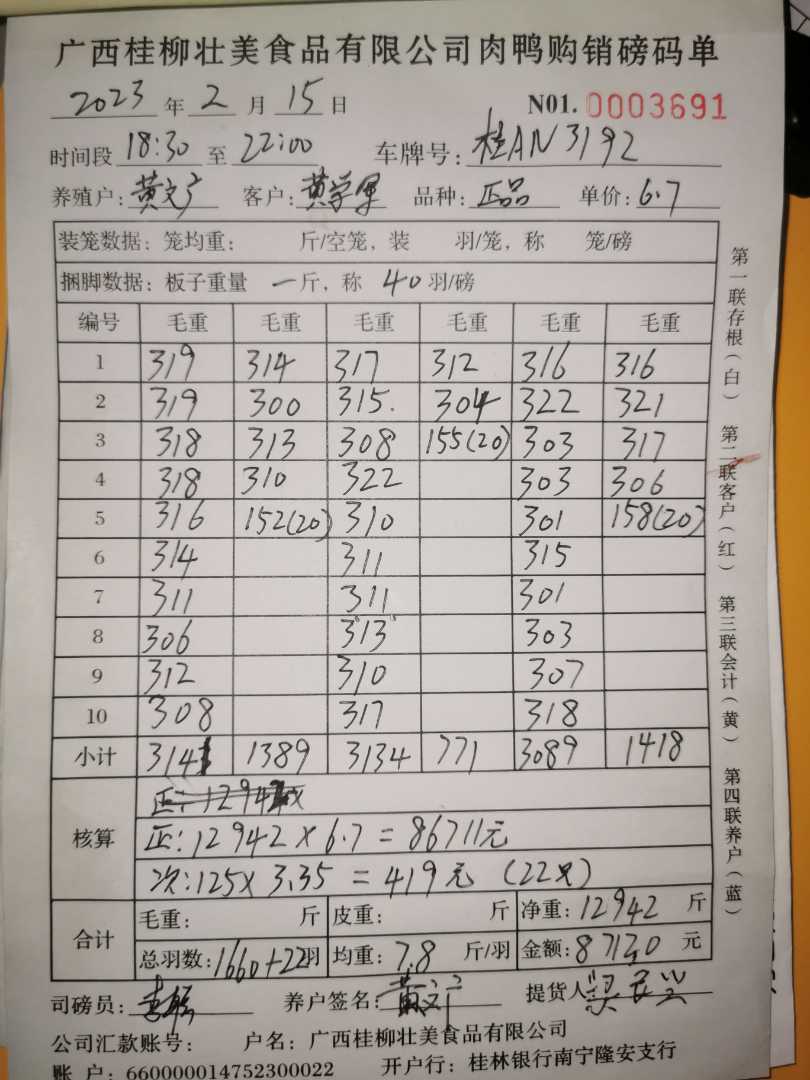 广西桂柳壮美食品有限公司肉鸭购销磅码单
2023 年 2 月 15 日 N01. 0003691
时间段 18:30 至 22:00 车牌号: 桂AN3192
养殖户: 黄文广 客户: 黄学军 品种: 正品 单价: 6.7
装笼数据: 笼均重: 斤/空笼, 装 羽/笼, 称 笼/磅
捆脚数据: 板子重量 一斤, 称 40 羽/磅
编号 毛重 毛重 毛重 毛重 毛重 毛重
1 319 314 317 312 316 316
2 319 300 315. 304 322 321
3 318 313 308 155(20) 303 317
4 318 310 322 303 306
5 316 152(20) 310 301 158(20)
6 314 311 315
7 311 311 301
8 306 313 303
9 312 310 307
10 308 317 318
小计 3141 1389 3134 771 3089 1418
核算
正:12942×6.7=86711元
次:125×3.35=419元 (22只)
合计
毛重: 斤 皮重: 斤 净重: 12942 斤
总羽数: 1660+22羽 均重: 7.8 斤/羽 金额: 87130 元
司磅员: 养户签名: 黄文广 提货人
公司汇款账号: 户名: 广西桂柳壮美食品有限公司
账 户: 660000014752300022 开户行: 桂林银行南宁隆安支行
第一联存根(白)
第二联客户(红)
第三联会计(黄)
第四联养户(蓝)